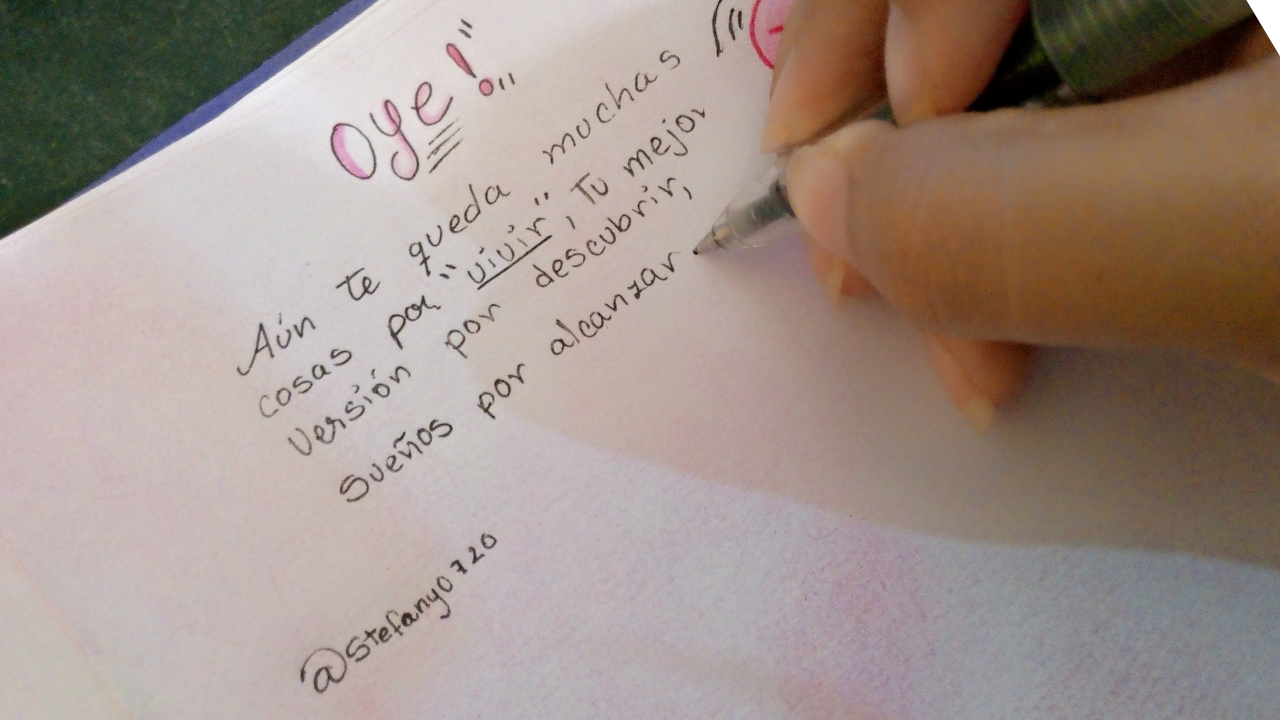 Oye!
Aún te queda muchas
cosas por "vivir", Tu mejor
versión por descubrir,
Sueños por alcanzar
@stefany0720